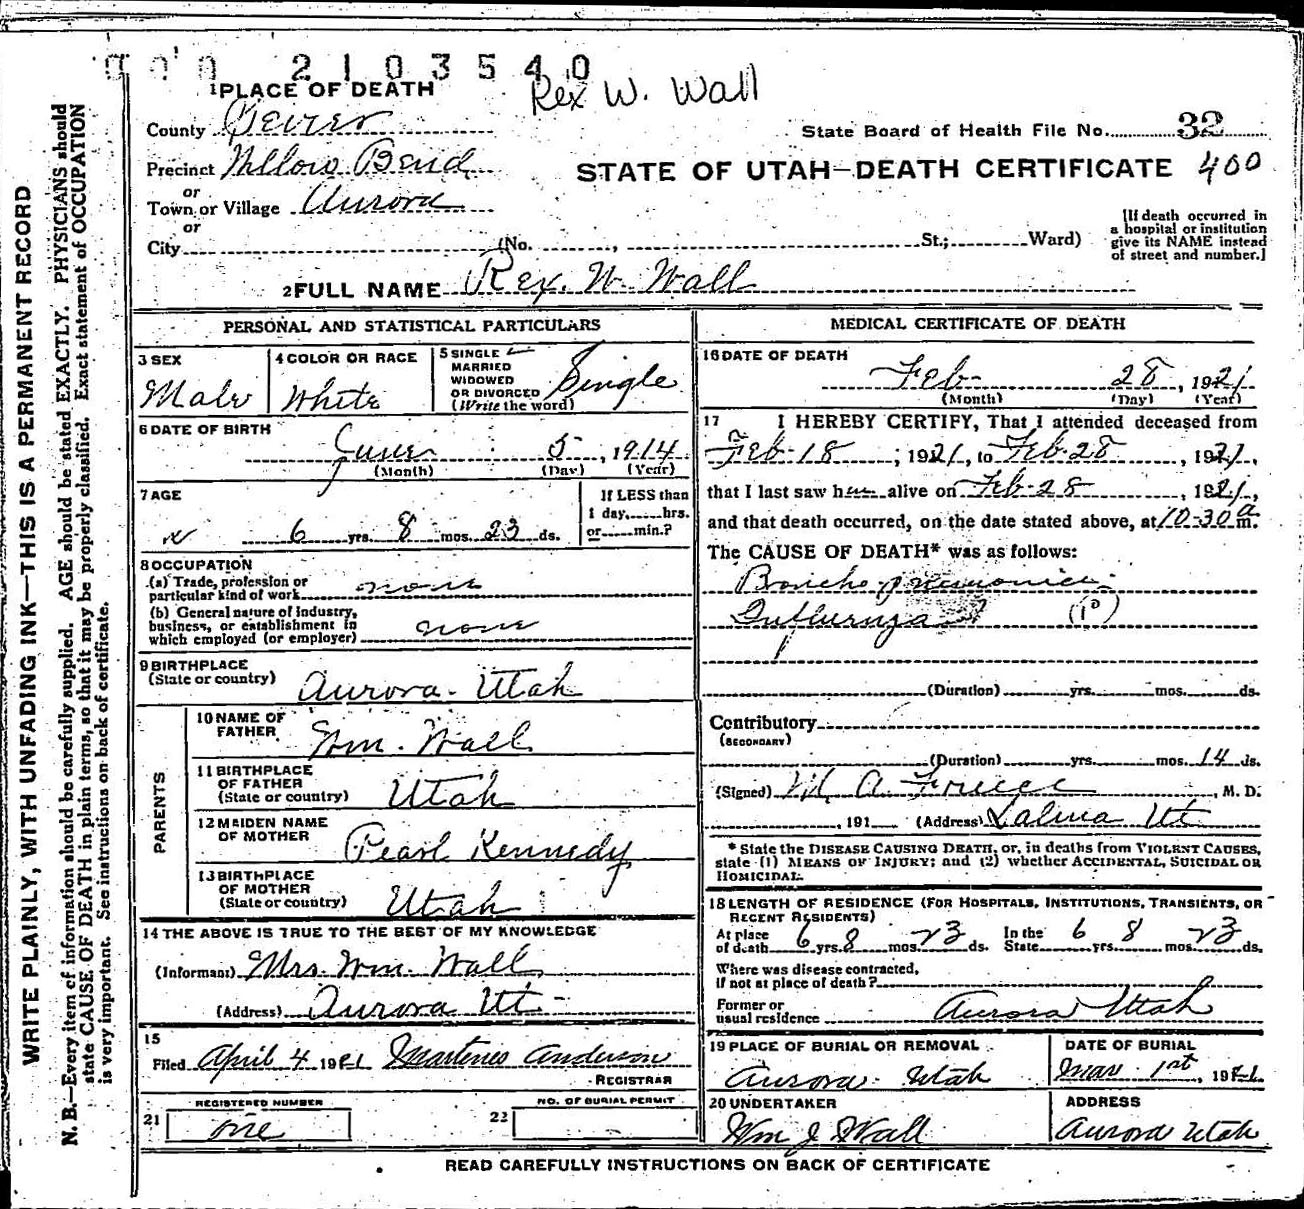 000 2103540
1 PLACE OF DEATH
Rex W. Wall
County Sevier
State Board of Health File No. 32
Precinct Willow Bend
STATE OF UTAH—DEATH CERTIFICATE 400
or
Town or Village Aurora
or
City (No. , St.; Ward)
[If death occurred in
a hospital or institution
give its NAME instead
of street and number.]
2 FULL NAME Rex. W. Wall
PERSONAL AND STATISTICAL PARTICULARS
3 SEX
Male
4 COLOR OR RACE
White
5 SINGLE
MARRIED
WIDOWED
OR DIVORCED
(Write the word)
Single
6 DATE OF BIRTH
June 5, 1914
(Month) (Day) (Year)
7 AGE
6 yrs. 8 mos. 23 ds.
If LESS than
1 day, hrs.
or min.?
8 OCCUPATION
(a) Trade, profession or
particular kind of work none
(b) General nature of industry,
business, or establishment in
which employed (or employer) none
9 BIRTHPLACE
(State or country) Aurora - Utah
PARENTS
10 NAME OF
FATHER Wm. Wall
11 BIRTHPLACE
OF FATHER
(State or country) Utah
12 MAIDEN NAME
OF MOTHER Pearl Kennedy
13 BIRTHPLACE
OF MOTHER
(State or country) Utah
14 THE ABOVE IS TRUE TO THE BEST OF MY KNOWLEDGE
(Informant) Mrs. Wm. Wall
(Address) Aurora Ut -
15
Filed April 4 1921 Martenus Anderson
REGISTRAR
21
REGISTERED NUMBER
one
22
NO. OF BURIAL PERMIT
MEDICAL CERTIFICATE OF DEATH
16 DATE OF DEATH
Feb - 28, 1921
(Month) (Day) (Year)
17 I HEREBY CERTIFY, That I attended deceased from
Feb-18, 1921, to Feb-28, 1921,
that I last saw him alive on Feb-28, 1921,
and that death occurred, on the date stated above, at 10-30 a m.
The CAUSE OF DEATH* was as follows:
Broncho-pneumonia
Influenza (P)
(Duration) yrs. mos. ds.
Contributory
(SECONDARY)
(Duration) yrs. mos. 14 ds.
(Signed) M. A. , M. D.
, 191 (Address) Salina Ut
* State the DISEASE CAUSING DEATH, or, in deaths from VIOLENT CAUSES,
state (1) MEANS OF INJURY; and (2) whether ACCIDENTAL, SUICIDAL OR
HOMICIDAL.
18 LENGTH OF RESIDENCE (FOR HOSPITALS, INSTITUTIONS, TRANSIENTS, OR
RECENT RESIDENTS)
At place
of death 6 yrs. 8 mos. 23 ds.
In the
State 6 yrs. 8 mos. 23 ds.
Where was disease contracted,
if not at place of death?
Former or
usual residence Aurora Utah
19 PLACE OF BURIAL OR REMOVAL
Aurora - Utah
DATE OF BURIAL
Mar 1st, 1921
20 UNDERTAKER
Wm J Wall
ADDRESS
Aurora Utah
READ CAREFULLY INSTRUCTIONS ON BACK OF CERTIFICATE
WRITE PLAINLY, WITH UNFADING INK—THIS IS A PERMANENT RECORD
N. B.—Every item of information should be carefully supplied. AGE should be stated EXACTLY. PHYSICIANS should
state CAUSE OF DEATH in plain terms, so that it may be properly classified. Exact statement of OCCUPATION
is very important. See instructions on back of certificate.